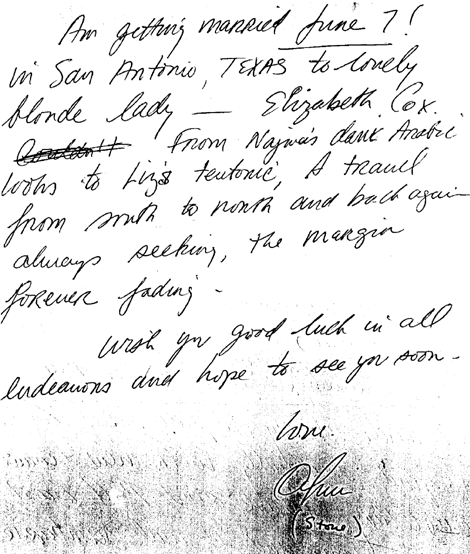 Am getting married June 7!
in San Antonio, TEXAS to lovely
blonde lady — Elizabeth Cox.
Couldn't From Najwa's dark Arabic
looks to Liz's teutonic, A travel
from south to north and back again
always seeking, the margin
forever fading -
Wish you good luck in all
endeavors and hope to see you soon -
love.
(Stone)